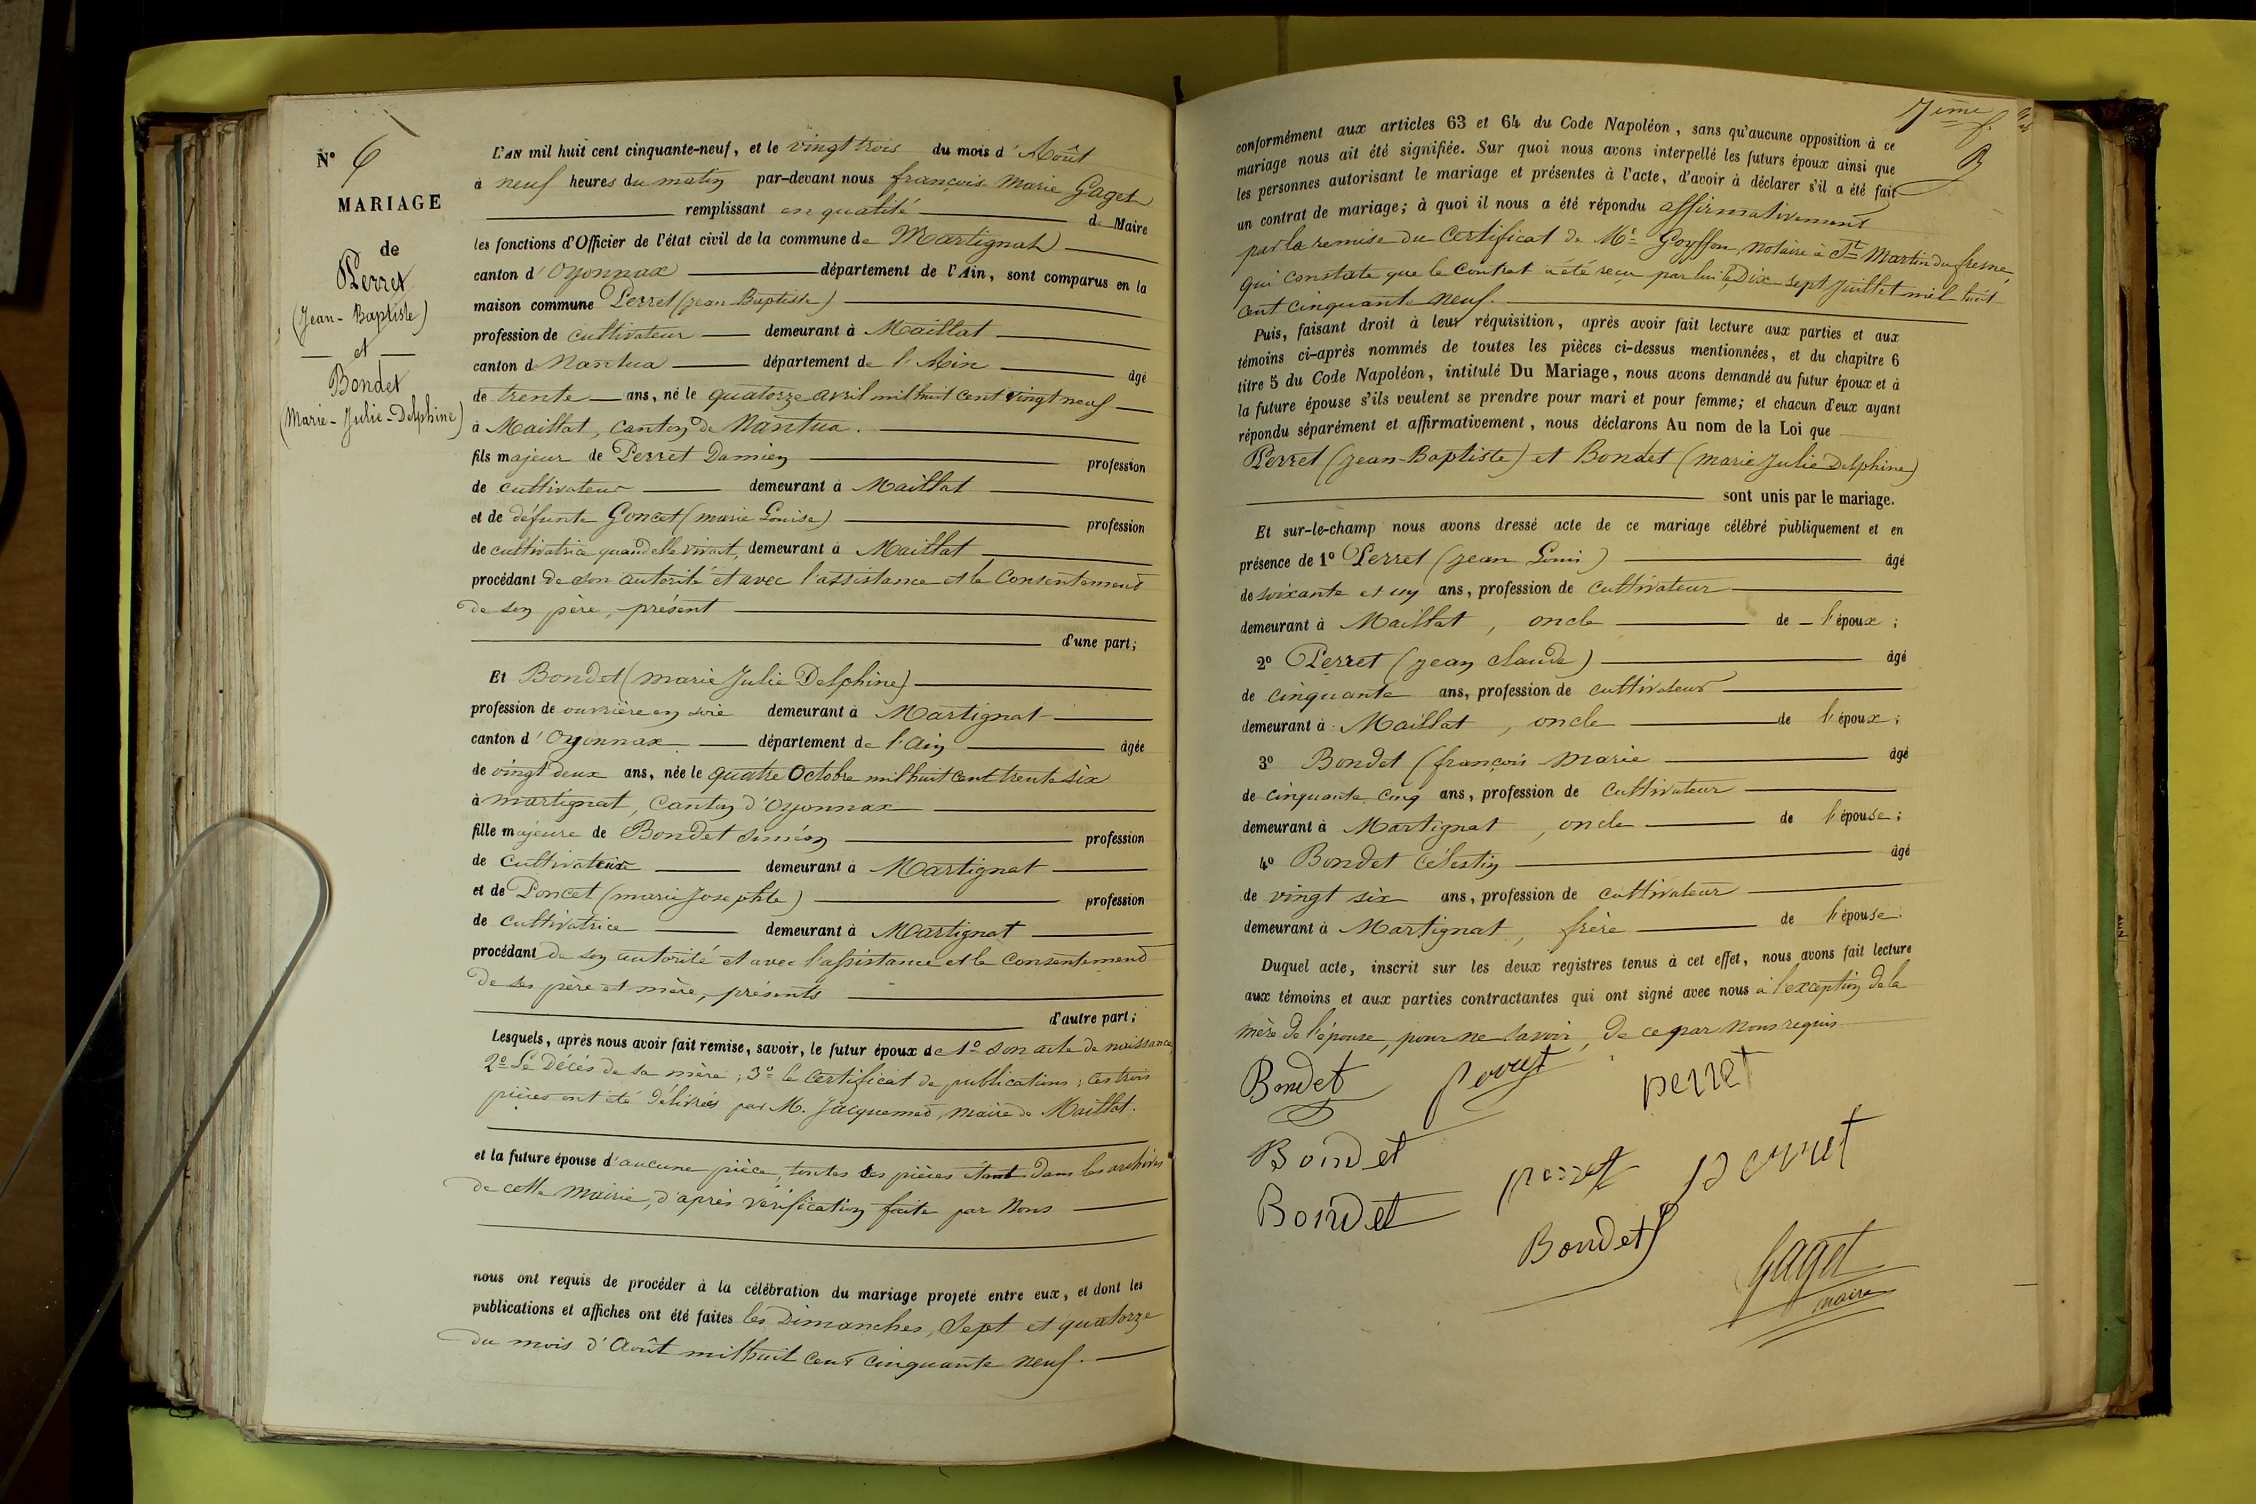 N° 6
MARIAGE
de
Perret
(Jean-Baptiste)
— et —
Bondet
(Marie-Julie-Delphine)
L'AN mil huit cent cinquante-neuf, et le vingt trois du mois d'Août
à neuf heures du matin par-devant nous françois Marie Gaget
remplissant en qualité de Maire
les fonctions d'Officier de l'état civil de la commune de Martignat
canton d'Oyonnax département de l'Ain, sont comparus en la
maison commune Perret (jean Baptiste)
profession de cultivateur demeurant à Maillat
canton d Nantua département de l'Ain âgé
de trente ans, né le quatorze avril mil huit cent vingt neuf
à Maillat, canton de Nantua.
fils majeur de Perret Damien profession
de cultivateur demeurant à Maillat
et de défunte Goncet (marie Louise) profession
de cultivatrice quand elle vivait, demeurant à Maillat
procédant de son autorité et avec l'assistance et le consentement
de son père, présent
d'une part;
Et Bondet (marie Julie Delphine)
profession de ouvrière en soie demeurant à Martignat
canton d'Oyonnax département de l'Ain âgée
de vingt deux ans, née le quatre Octobre mil huit cent trente six
à martignat, canton d'Oyonnax
fille majeure de Bondet Siméon profession
de cultivateur demeurant à Martignat
et de Poncet (marie Josephte) profession
de cultivatrice demeurant à Martignat
procédant de son autorité et avec l'assistance et le consentement
de ses père et mère, présents
d'autre part;
Lesquels, après nous avoir fait remise, savoir, le futur époux de 1° son acte de naissance,
2° Le Décès de sa mère; 3° le certificat de publications; ces trois
pièces ont été délivrées par M. Jacquemed, maire de Maillat.
et la future épouse d'aucune pièce, toutes ces pièces étant dans les archives
de cette Mairie, d'après vérification faite par Nous
nous ont requis de procéder à la célébration du mariage projeté entre eux, et dont les
publications et affiches ont été faites les Dimanches, Sept et quatorze
du mois d'Août mil huit cent cinquante neuf.
7ème f.
conformément aux articles 63 et 64 du Code Napoléon, sans qu'aucune opposition à ce
mariage nous ait été signifiée. Sur quoi nous avons interpellé les futurs époux ainsi que
les personnes autorisant le mariage et présentes à l'acte, d'avoir à déclarer s'il a été fait
un contrat de mariage; à quoi il nous a été répondu affirmativement
par la remise du Certificat de Me Goyffon, notaire à St Martin du fresne,
qui constate que le Contrat a été reçu par lui le Dix sept Juillet mil huit
cent cinquante neuf.
Puis, faisant droit à leur réquisition, après avoir fait lecture aux parties et aux
témoins ci-après nommés de toutes les pièces ci-dessus mentionnées, et du chapitre 6
titre 5 du Code Napoléon, intitulé Du Mariage, nous avons demandé au futur époux et à
la future épouse s'ils veulent se prendre pour mari et pour femme; et chacun d'eux ayant
répondu séparément et affirmativement, nous déclarons Au nom de la Loi que
Perret (jean-Baptiste) et Bondet (marie Julie Delphine)
sont unis par le mariage.
Et sur-le-champ nous avons dressé acte de ce mariage célébré publiquement et en
présence de 1° Perret (jean Louis) âgé
de soixante et un ans, profession de cultivateur
demeurant à Maillat, oncle de l'époux;
2° Perret (jean claude) âgé
de cinquante ans, profession de cultivateur
demeurant à Maillat, oncle de l'époux;
3° Bondet (françois Marie âgé
de cinquante cinq ans, profession de cultivateur
demeurant à Martignat, oncle de l'épouse;
4° Bondet Célestin âgé
de vingt six ans, profession de cultivateur
demeurant à Martignat, frère de l'épouse.
Duquel acte, inscrit sur les deux registres tenus à cet effet, nous avons fait lecture
aux témoins et aux parties contractantes qui ont signé avec nous à l'exception de la
mère de l'épouse, pour ne savoir, de ce par Nous requis
Bondet perret perret
Bondet perret perret
Bondet Bondet
Gaget
maire